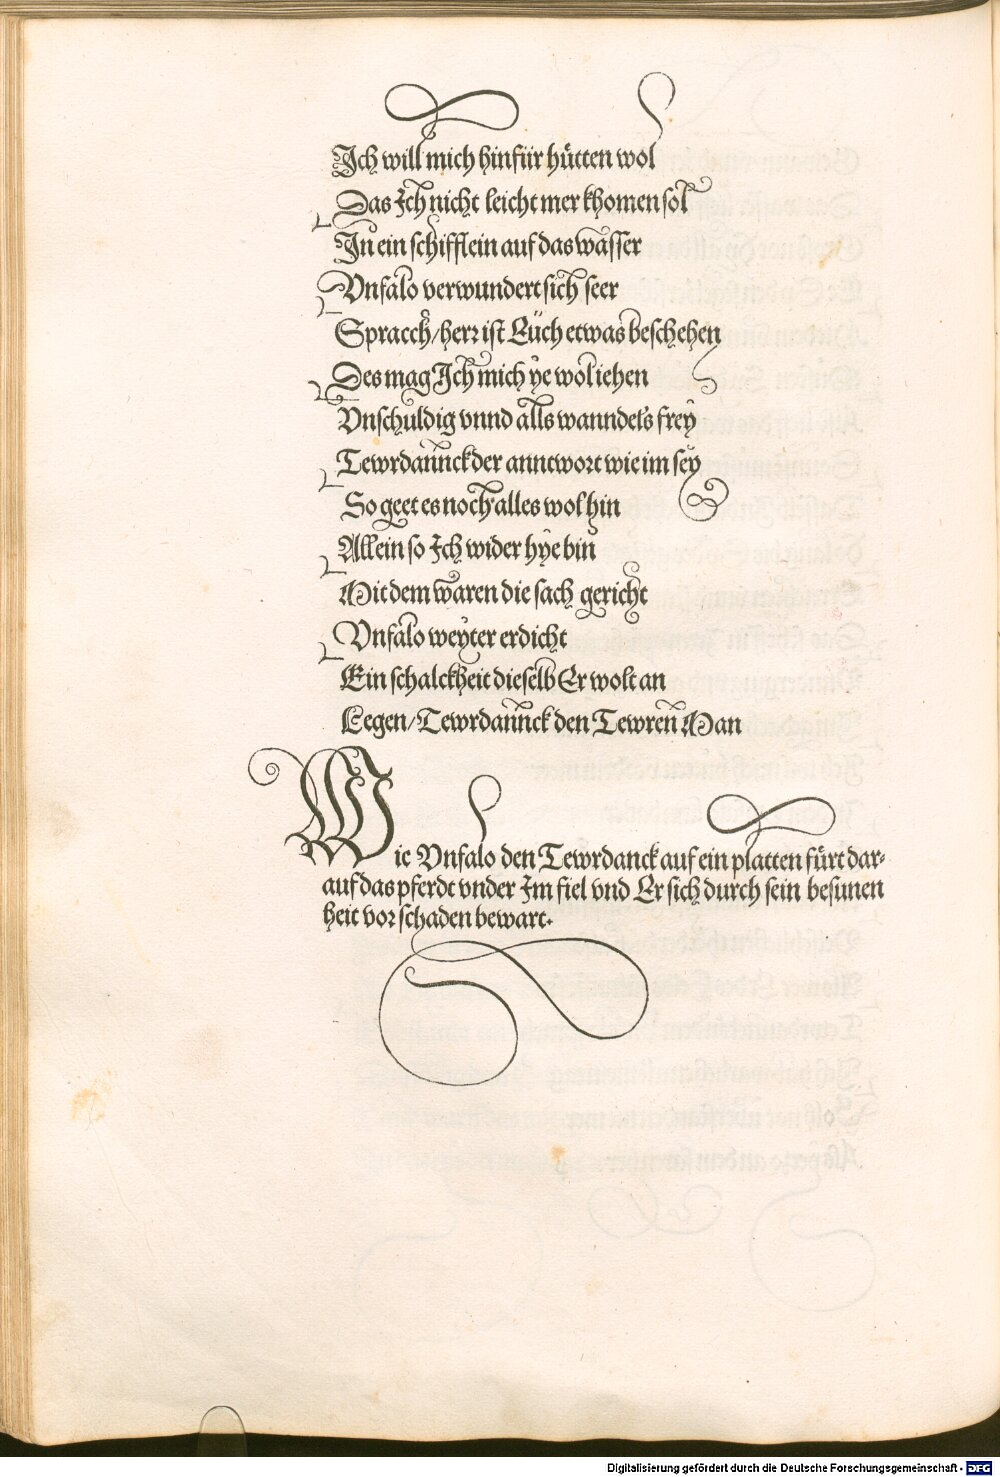 Ich will mich hinfür hütten wol
Das Ich nicht leicht mer khomen sol
In ein schifflein auf das wasser
Vnfalo verwundert sich seer
Spracch/herr ist Euch etwas beschehen
Des mag Ich mich ÿe wol iehen
Vnschuldig vnnd alls wanndels freÿ
Tewrdannck der anntwort wie im seÿ
So geet es noch alles wol hin
Allein so Ich wider hÿe bin
Mit dem waren die sach gericht
Vnfalo weÿter erdicht
Ein schalckheit dieselb Er wolt an
Legen/Tewrdannck den Tewren Man
Wie Vnfalo den Tewrdanck auf ein platten fürt dar-
auf das pferdt vnder Im fiel vnd Er sich durch sein besunen
heit vor schaden bewart.
Digitalisierung gefördert durch die Deutsche Forschungsgemeinschaft - DFG